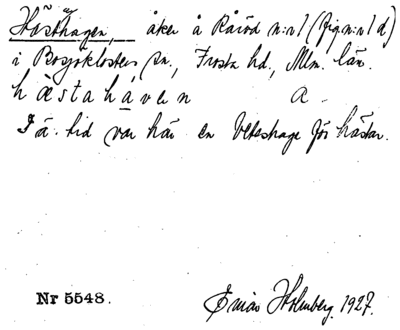 Hästhagen, åker å Råröd n:r 1 (Fig. n:r 1 d)
i Bosjöklosters sn., Frosta hd., Mlm. län.
hästahåven a -
I ä. tid var här en beteshage för hästar.
Nr 5548. Holmberg. 1927.